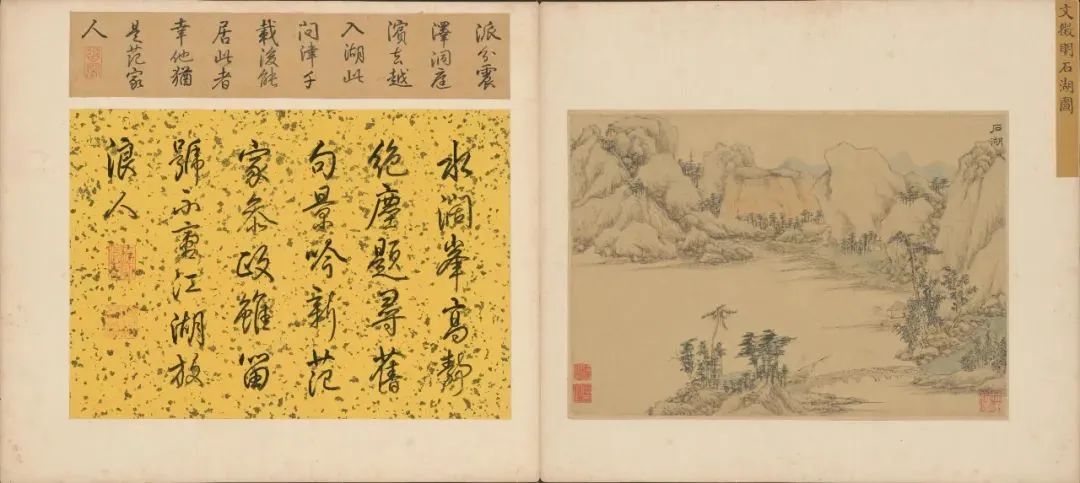 文徵明石湖圖
石湖
派分震
澤洞庭
濱去越
入湖此
问津千
載後能
居此者
幸他猶
是范家
人
水濶峯高靜
絕塵題尋舊
句景吟新范
家叅政雖留
號不更江湖放
浪人